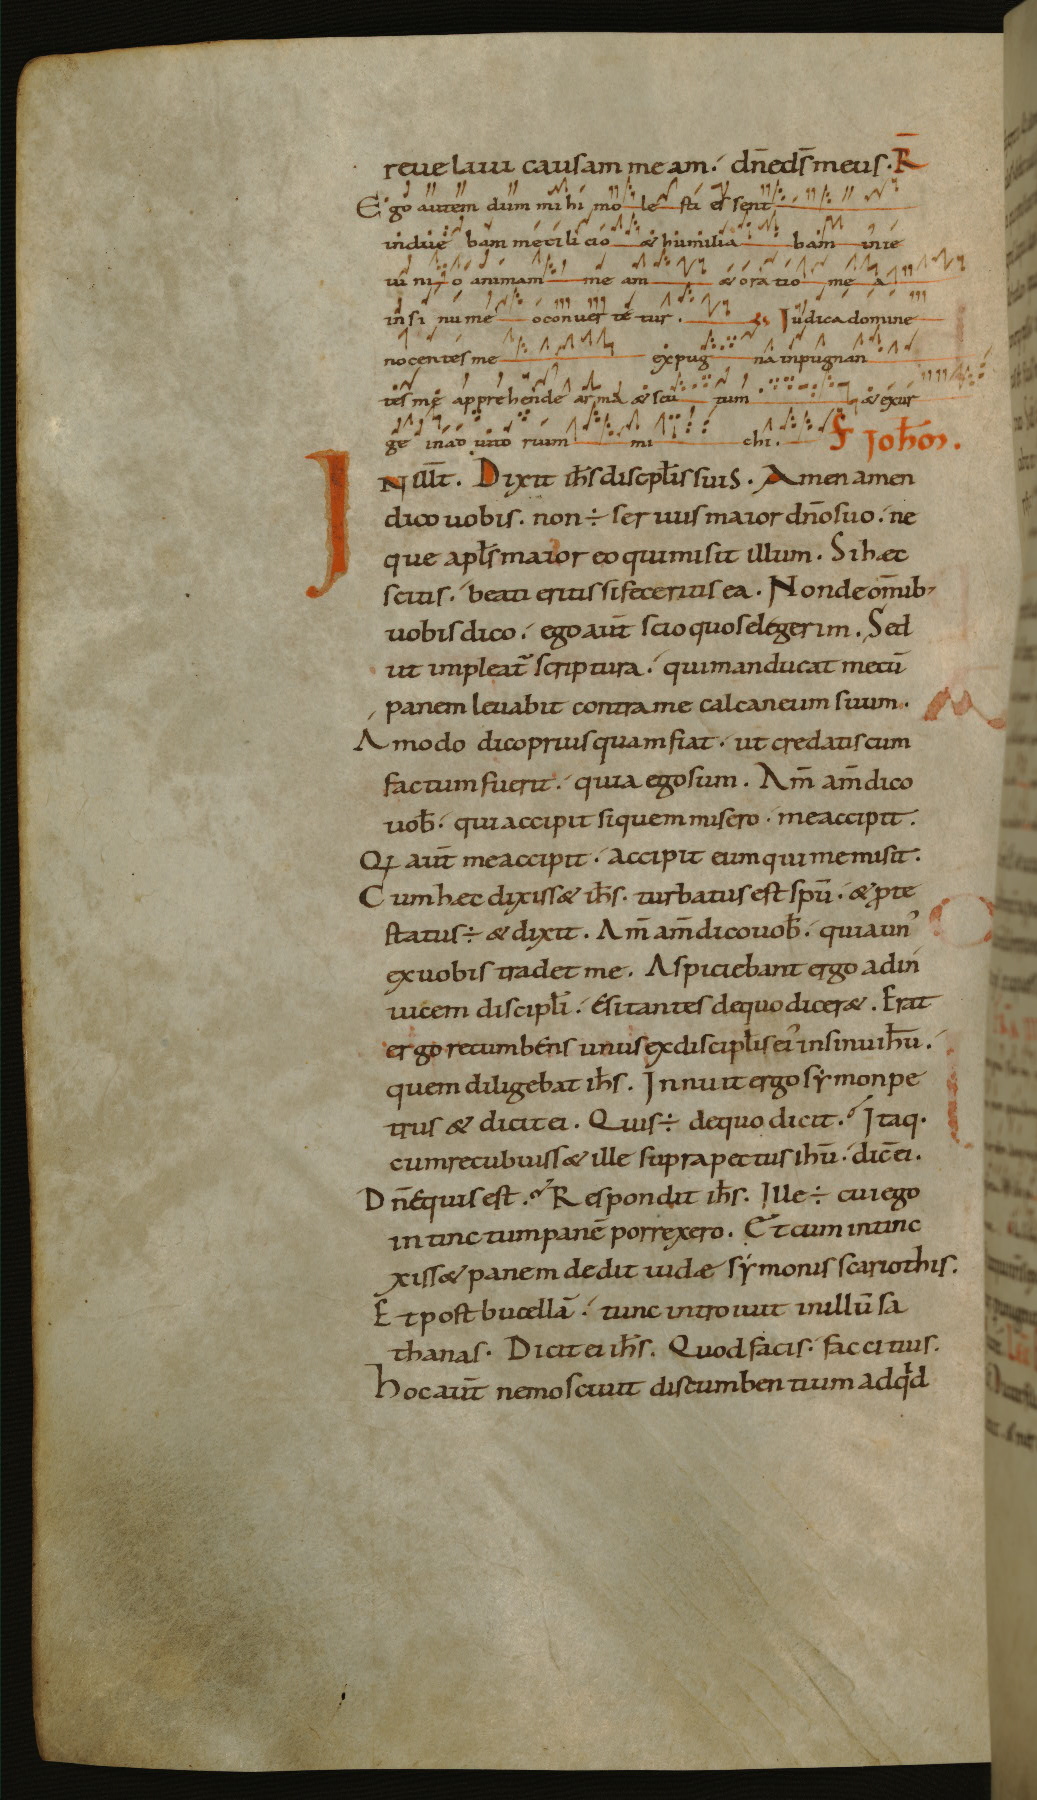 reuelaui causam meam. dn̄e ds̄ meus. R̄
Ego autem dum mihi molesti essent
induebam me cilicio & humilia bam in ie
iuni o animam me am & oratio me a
in sinu me o conuertetur. Iudica domine
nocentes me expug na inpugnan
tes me apprehende arma & scu tum & exur
ge in adiuto rium mi chi. Sc̄ Joh̄m.
IN ill̄t. Dixit ih̄s discipl̄is suis. Amen amen
dico uobis. non ÷ seruus maior dn̄o suo. ne
que apl̄s maior eo qui misit illum. Si hæc
scitis. beati eritis si feceritis ea. Non de om̄ib;
uobis dico. ego aut̄ scio quos elegerim. Sed
ut impleat̄ scriptura. qui manducat mecū
panem leuabit contra me calcaneum suum.
Amodo dico priusquam fiat. ut credatis cum
factum fuerit. quia ego sum. Am̄ am̄ dico
uob̄. qui accipit siquem misero. me accipit.
Q aut̄ me accipit. accipit eum qui me misit.
Cum hæc dixiss& ih̄s. turbatus est spū. & pte
status ÷ & dixit. Am̄ am̄ dico uob̄. quia un'
ex uobis tradet me. Aspiciebant ergo ad in
uicem discipl̄i. esitantes de quo dicer&. Erat
ergo recumbens unus ex discipl̄is ei' in sinu ih̄u.
quem diligebat ih̄s. Innuit ergo symon pe
trus & dicit ei. Quis ÷ de quo dicit. Itaq.
cum recubuiss& ille supra pectus ihū. dic̄ ei.
Dn̄e quis est. Respondit ih̄s. Ille ÷ cui ego
intinctum panē porrexero. Et cum intinc
xiss& panem dedit iudæ symonis scariothis.
Et post bucellā. tunc introiuit in illū sa
thanas. Dicit ei ih̄s. Quod facis. fac citius.
Hoc aut̄ nemo sciuit discumbentium ad qd